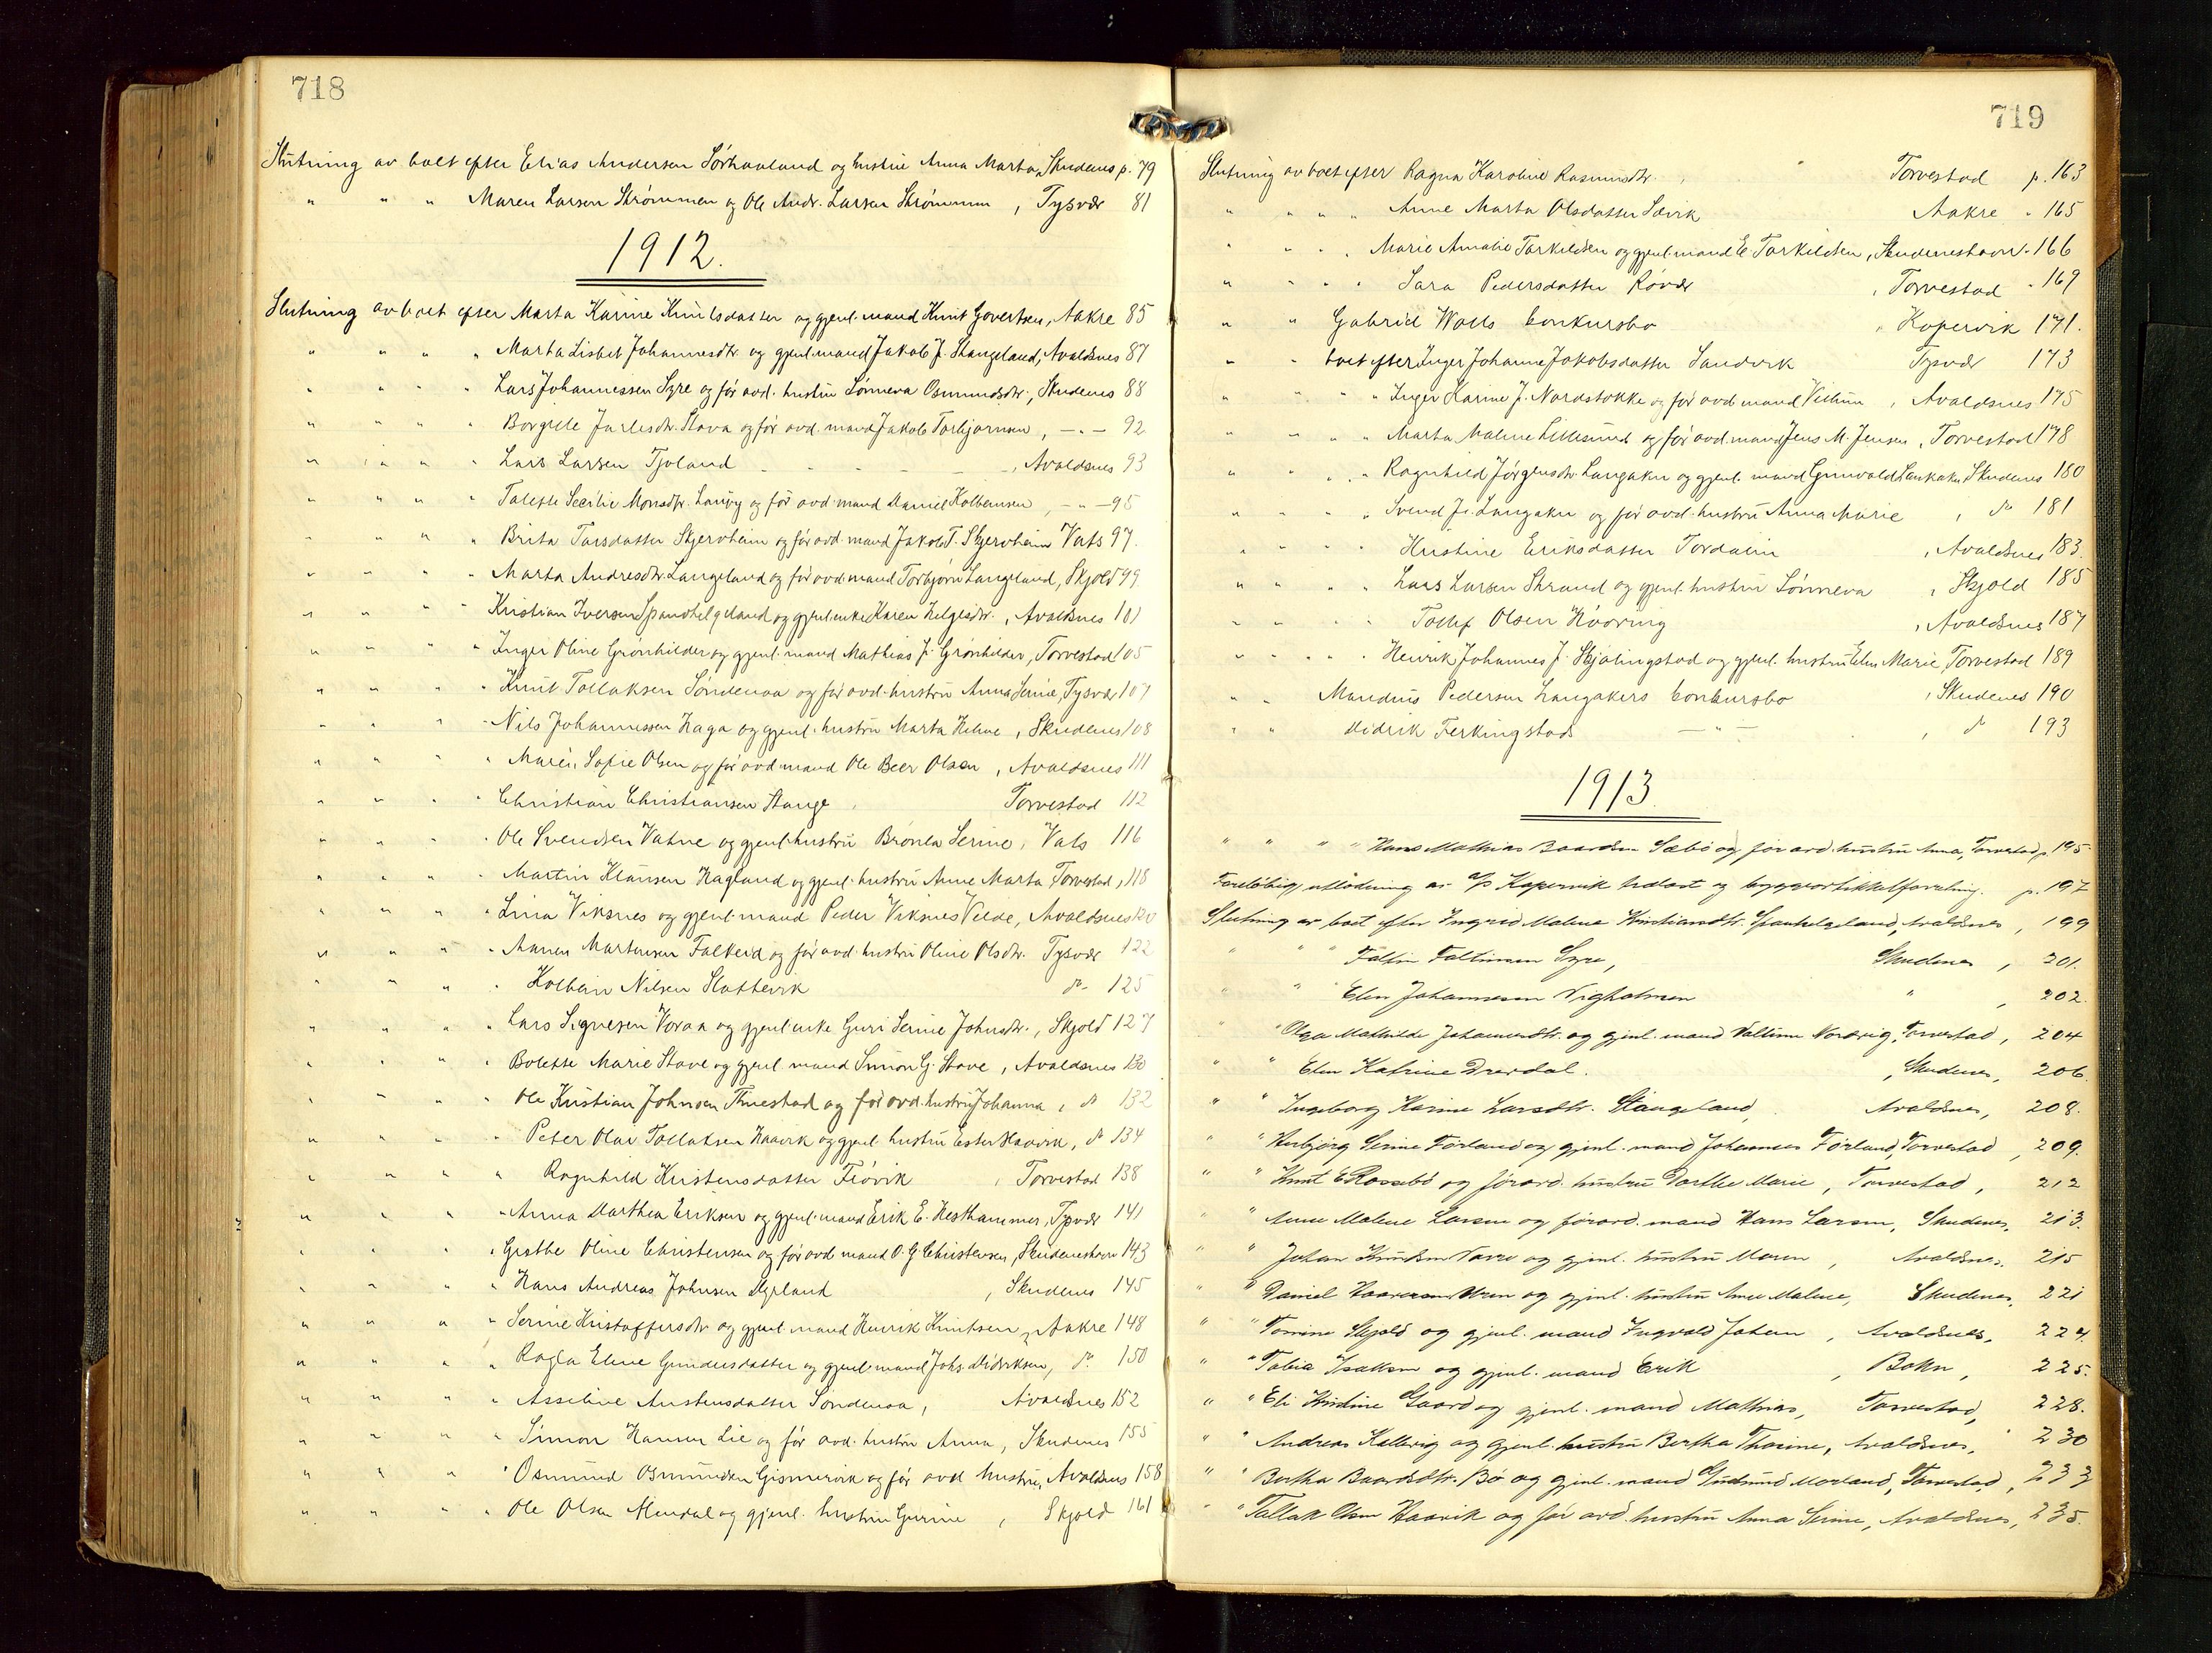 718
Slutning av boet efter Elias Andersen Sørhaaland og hustru Anna Marta, Skudenes p. 79
" " " Maren Larsen Strømmen og Ole Andr. Larsen Strømmen, Tysvær 81
1912.
Slutning av boet efter Marta Karine Knutsdatter og gjenl. mand Knut Govertsen, Aakre 85
" " " " Marta Lisbet Johannesdtr. og gjenl. mand Jakob J. Stangeland, Avaldsnes 87
" " " " Lars Johannessen Syre og før avd. hustru Sønneva Osmundsdtr., Skudenes 88
" " " " Borgille Jarlesdtr. Stava og før avd. mand Jakob Torbjørnsen, — " — 92
" " " " Lars Larsen Tjoland , Avaldsnes 93
" " " " Talette Secilie Monsdtr. og før avd. mand Daniel Kolbeinsen, — " — 95
" " " " Brita Larsdatter Skjerveheim og før avd. mand Jakob T. Skjerveheim Vats 97.
" " " " Marta Andresdtr. Langeland og før avd. mand Torbjørn Langeland, Skjold 99
" " " " Kristian Iversen Spandhelgeland og gjenl. enke Karen Helgesdtr., Avaldsnes 101
" " " " Inger Oline Grønhilder og gjenl. mand Mathias J. Grønhilder, Torvestad 105
" " " " Knut Tollaksen Søndenaa og før avd. hustru Anna Serine, Tysvær 107
" " " " Nils Johannessen Haga og gjenl. hustru Marta Helene, Skudenes 108
" " " " Maren Sofie Olsen og før avd. mand Ole Beer Olsen, Avaldsnes 111
" " " " Christian Christiansen Stange Torvestad 112
" " " " Ole Svendsen Vatne og gjenl. hustru Serine, Vats 116
" " " " Martin Klausen Hagland og gjenl. hustru Anne Marta, Torvestad, 118
" " " " Lina Viksnes og gjenl. mand Peder Viksnes Velde, Avaldsnes 120
" " " " Aanen Martensen Falkeid og før avd. hustru Oline Olsdtr. Tysvær 122
" " " " Kolbein Nilsen Slattevik do 125
" " " " Lars Sigvesen Voraa og gjenl. enke Guri Serine Johnsdtr., Skjold 127
" " " " Bolette Marie Stave og gjenl. mand Simon G. Stave, Avaldsnes 130
" " " " Ole Kristian Johnsen Tuestad og før avd. hustru Johanna, do 132
" " " " Peter Olai Tollaksen Haavik og gjenl. hustru Ester Haavik, do 134
" " " " Ragnhild Kristensdatter Feøvik , Torvestad 138
" " " " Anna Dorthea Eriksen og gjenl. mand Erik E. Hesthammer, Tysvær 141
" " " " Grethe Oline Christensen og før avd. mand O. G. Christensen, Skudeneshavn 143
" " " " Hans Andreas Johnsen Dyrland , Skudenes 145
" " " " Serine Kristoffersdtr. og gjenl. mand Henrik Knutsen, Aakre 148
" " " " Ragla Eline Gundersdatter og gjenl. mand Johs. Didriksen, do 150
" " " " Asseline Austensdatter Søndenaa, Avaldsnes 152
" " " " Simon Hansen Lie og før avd. hustru Anna, Skudenes 155
" " " " Osmund Osmundsen Gismervik og før avd. hustru, Avaldsnes 158
" " " " Ole Olsen Alendal og gjenl. hustru Gurine , Skjold 161
719
Slutning av boet efter Ragna Karoline Rasmusdtr. Torvestad p. 163
" " " " Anne Marta Olsdatter Sævik Aakre " 165
" " " Marie Amalie Torkildsen og gjenl. mand E. Torkildsen, Skudeneshavn " 166
" " " " Sara Pedersdatter Røvær , Torvestad " 169
" " Gabriel Wolls konkursbo , Kopervik 171.
" " boet efter Inger Johanne Jakobsdatter Sandvik Tysvær 173
" " " " Inger Karine J. Nordstokke og før avd. mand Villum , Avaldsnes 175
" " " " Marta Malene Lillesund og før avd. mand Jens M. Jensen, Torvestad 178
" " " Ragnhild Jørgensdtr. Langaker og gjenl. mand Grunvald Langaker, Skudenes 180
" " " " Svend Js. Langaker og før avd. hustru Anna Marie , do 181
" " " " Kristine Eriksdatter Tordalin , Avaldsnes 183.
" " " " Lars Larsen Strand og gjenl. hustru Sønneva , Skjold 185
" " " " Tollef Olsen Kvoring , Avaldsnes 187
" " " " Henrik Johannes J. Skjølingstad og gjenl. hustru Elen Marie, Torvestad 189
" " Mandius Pedersen Langakers konkursbo , Skudenes 190
" " Didrik Ferkingstads — " — , do 193
1913.
" " " " Hans Mathias Baardsen Sæbø og før avd. hustru Anna, Torvestad p. 195
Foreløbig utlodning av A/S Kopervik trælast og byggeartikkelforretning. p. 197
Slutning av boet efter Ingrid Malene Kristiansdtr. Spanhelgeland, Avaldsnes, 199
" " " Faltin Faltinsen Syre, Skudenes , 201.
" " Elen Johannesen Vigholmen " , 202.
" " Olga Mathilde Johannesdtr. og gjenl. mand Valtinn Nordvig, Torvestad, 204
" " Elen Katrine Dreidal. , Skudenes, 206.
" " Ingeborg Karine Larsdtr. Stangeland, Avaldsnes, 208.
" " Herbjørg Serine Førland og gjenl. mand Johannes Førland, Torvestad, 209.
" " Knut E Rossebø og før avd. hustru Dorthe Marie, Torvestad, 212
" " Anne Malene Larsen og før avd. mand Hans Larsen, Skudenes, 213.
" " Johan Knudsen Vavre og gjenl. hustru Maren , Avaldsnes, 215
" " Daniel og gjenl. hustru Anne Malene, Skudenes, 221
" " Tomine Skjold og gjenl. mand Ingvald Johan , Avaldsnes, 224.
" " Tobia Isaksen og gjenl. mand Erik , Bokn, 225.
" " Eli Kristine Gaard og gjenl. mand Mathias, Torvestad, 228.
" " Andreas Kallevig og gjenl. hustru Bertha Thorine, Avaldsnes, 230
" " Bertha Baardsdtr. Bø og gjenl. mand Gudmund Morland, Torvestad, 233
" " Tallak Olsen Haavik og før avd. hustru Anna Serine, Avaldsnes, 235.